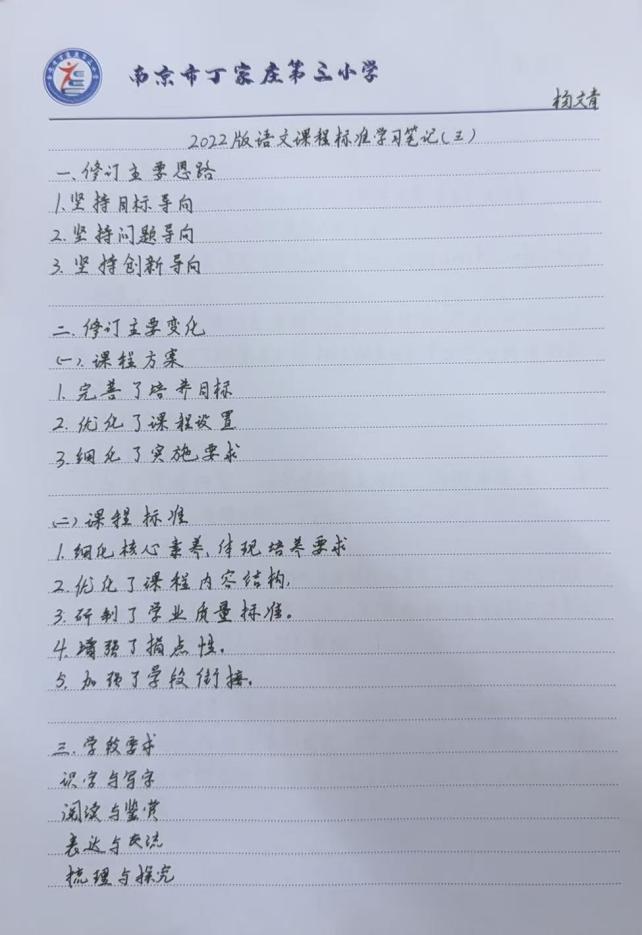 南京市丁家庄第三小学
杨文青
2022版语文课程标准学习笔记(三)
一.修订主要思路
1.坚持目标导向
2.坚持问题导向
3.坚持创新导向
二.修订主要变化
(一).课程方案
1.完善了培养目标
2.优化了课程设置
3.细化了实施要求
(二)课程标准
1.细化核心素养,体现培养要求
2.优化了课程内容结构.
3.研制了学业质量标准。
4.增强了指点性.
5.加强了学段衔接.
三.学段要求
识字与写字
阅读与鉴赏
表达与交流
梳理与探究